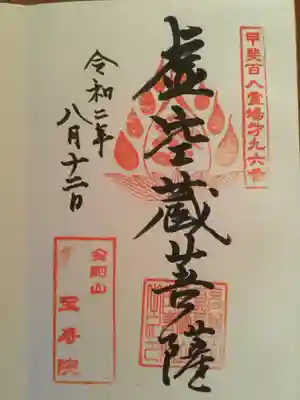 甲斐百八霊場才九六番
虚空蔵菩薩
令和二年
八月十二日
金剛山
宝寿院